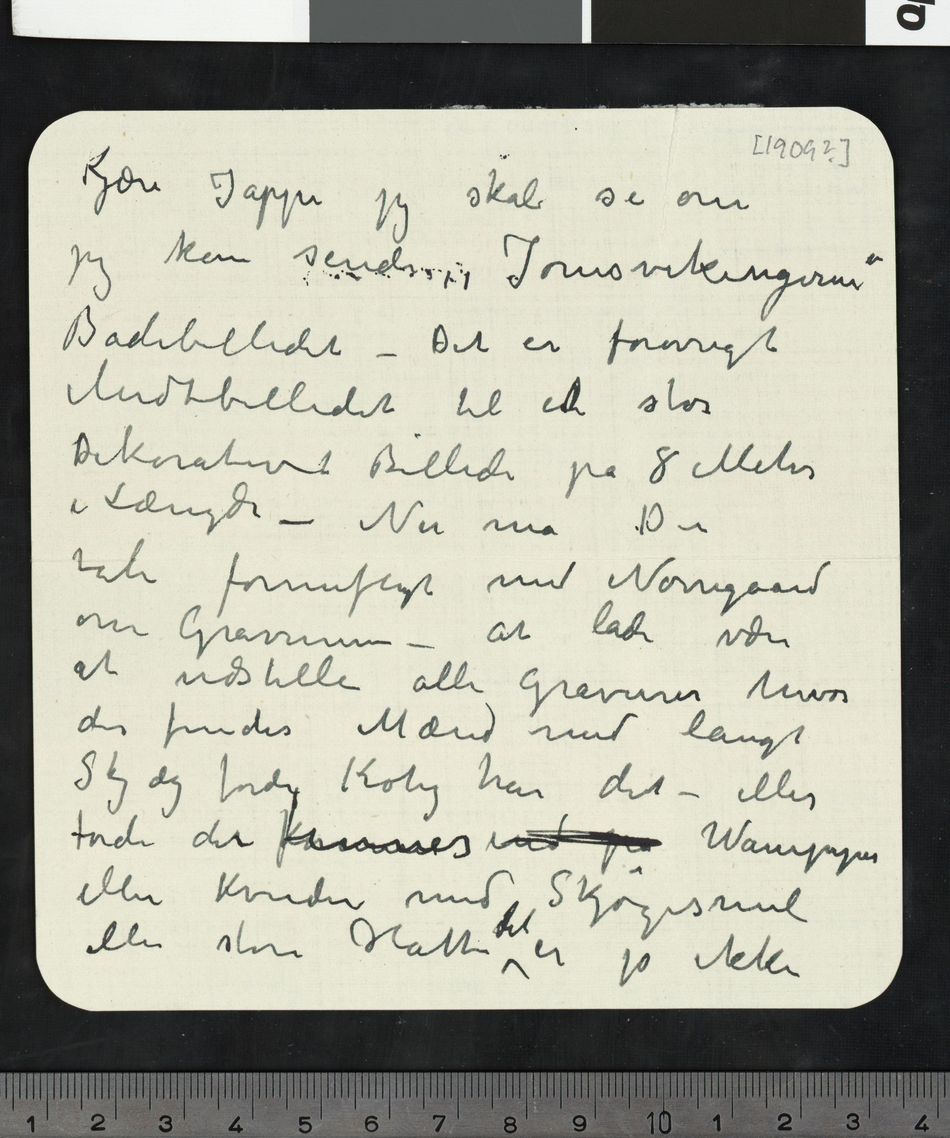 [1909?]
Kjære Jappe jeg skal se om
jeg kan sende „Jomsvikingerne“
Badebilledet – Det er forøvrigt
Midtbilledet til et stor
Dekorativt Billede på 8 Meter
i Længde – Nu må De
tale fornuftigt med Nørregaard
om Gravurerne – at lade være
at udstille alle Gravurer hvor
der findes Mænd med langt
Skjæg fordi Kolig har det – eller
fordi der med på Wampyrer
eller Kvinder med Skjøgesmil
eller store Hatte det er jo ikke
1 2 3 4 5 6 7 8 9 10 1 2 3 4